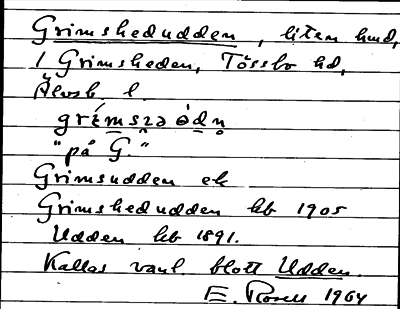 Grimshedudden, liten hmd,
/ Grimsheden, Tössbo hd,
Älvsb. l.
grémsɜə ödn̥
"på G."
Grimsudden ek
Grimshedudden hb 1905
Udden hb 1891.
Kallas vanl. blott Udden.
E. Rosell 1964